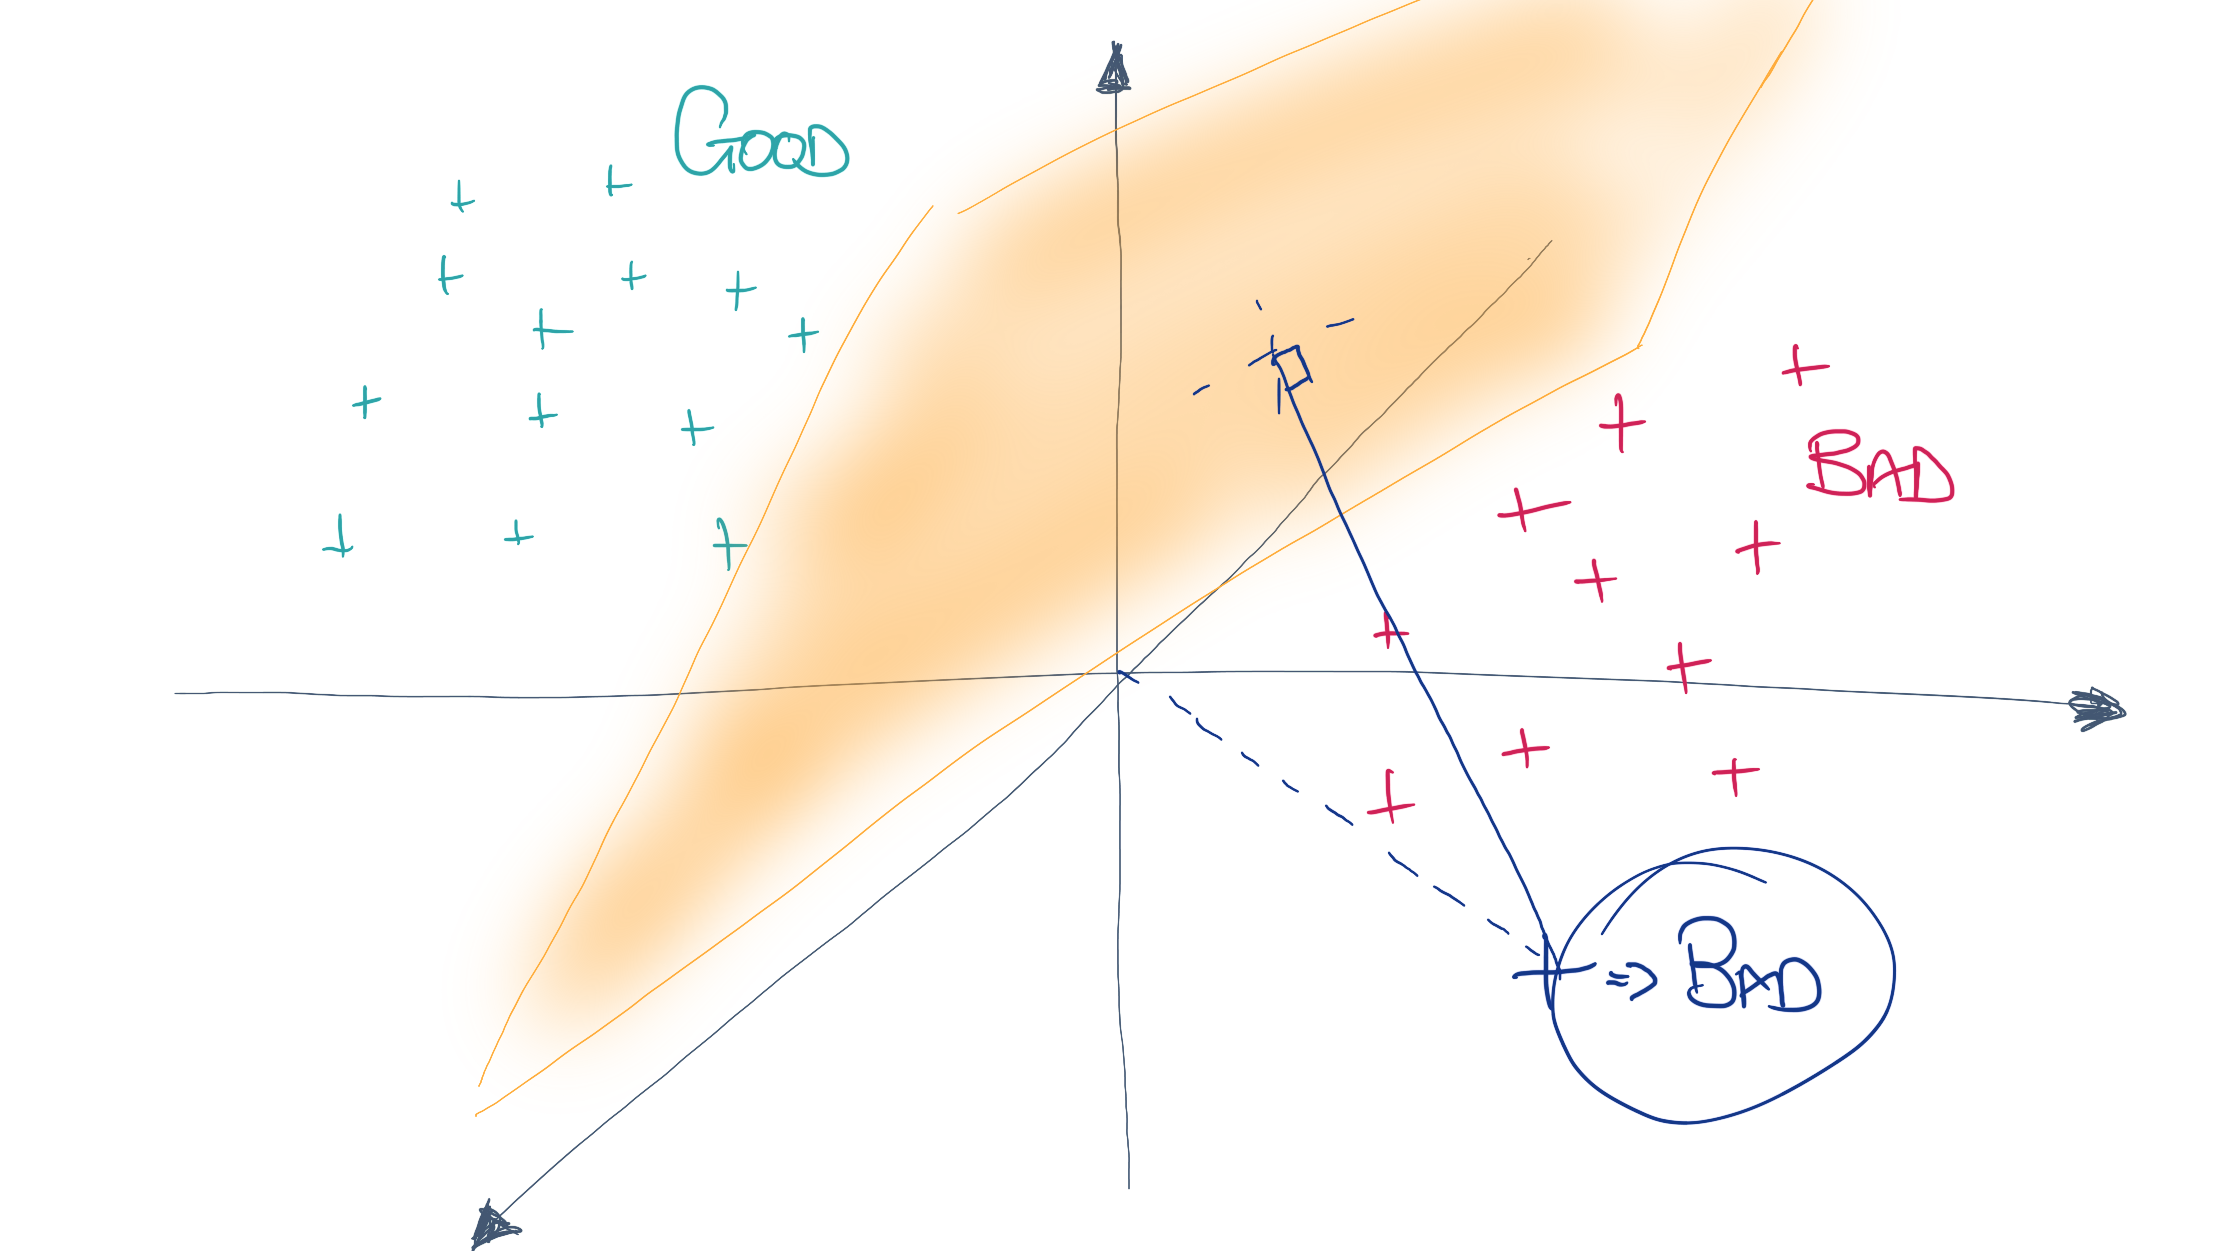 GOOD
BAD
=> BAD